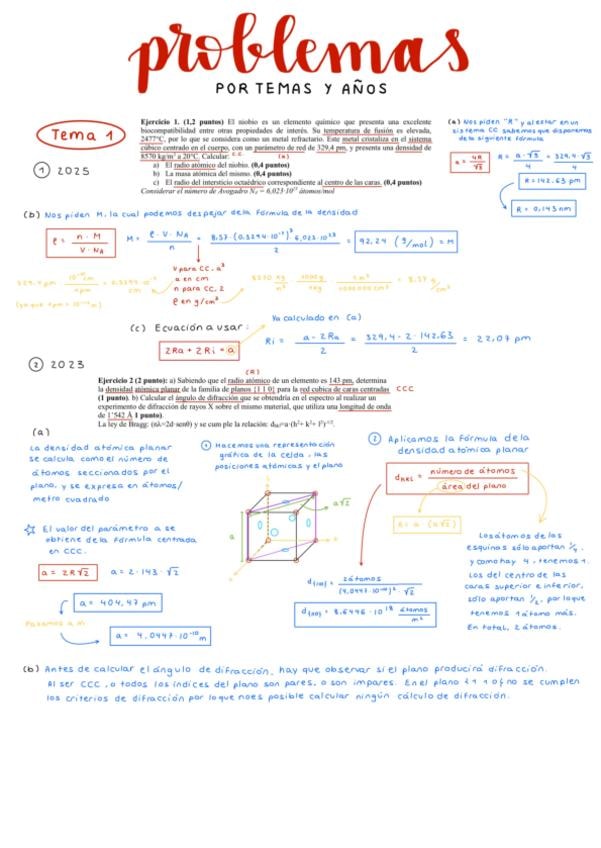 problemas
POR TEMAS Y AÑOS
Tema 1
1 2025
Ejercicio 1. (1,2 puntos) El niobio es un elemento químico que presenta una excelente
biocompatibilidad entre otras propiedades de interés. Su temperatura de fusión es elevada,
2477°C, por lo que se considera como un metal refractario. Este metal cristaliza en el sistema
cúbico centrado en el cuerpo, con un parámetro de red de 329,4 pm, y presenta una densidad de
8570 kg/m³ a 20°C. Calcular:
a) El radio atómico del niobio. (0,4 puntos)
b) La masa atómica del mismo. (0,4 puntos)
c) El radio del intersticio octaédrico correspondiente al centro de las caras. (0,4 puntos)
Considerar el número de Avogadro Nₐ = 6,023·10²³ átomos/mol
(a) Nos piden "R" y al estar en un
sistema CC sabemos que disponemos
de la siguiente fórmula
a = 4R/√3 R = a·√3/4 = 329,4·√3/4
R = 142.63 pm
R = 0,143 nm
(b) Nos piden M, la cual podemos despejar de la fórmula de la densidad
ρ = n·M/V·NA M = ρ·V·NA/n =
= 92,24 (g/mol) = M
V para CC, a³
a en cm
n para CC, 2
ρ en g/cm³
(c) Ecuación a usar:
Ya calculado en (a)
2Ra + 2Ri = a
Ri = a-2Ra/2 = 329,4-2·142,63/2 = 22,07 pm
2 2023
(R)
Ejercicio 2 (2 puntos): a) Sabiendo que el radio atómico de un elemento es 143 pm, determina
la densidad atómica planar de la familia de planos {1 1 0} para la red cúbica de caras centradas CCC
(1 punto). b) Calcular el ángulo de difracción que se obtendría en el espectro al realizar un
experimento de difracción de rayos X sobre el mismo material, que utiliza una longitud de onda
de 1'542 Å 1 punto).
La ley de Bragg: (nλ=2d·senθ) y se cumple la relación: dₕₖₗ=a·(h²+ k²+ l²)⁻¹/².
(a)
La densidad atómica planar
se calcula como el número de
átomos seccionados por el
plano, y se expresa en átomos/
metro cuadrado
El valor del parámetro a se
obtiene de la fórmula centrada
en CCC.
a = 2R√2 a = 2·143·√2
a = 404,47 pm
Pasamos a m
a = 4,0447·10⁻¹⁰ m
1 Hacemos una representación
gráfica de la celda, las
posiciones atómicas y el plano
a√2
a
2 Aplicamos la fórmula de la
densidad atómica planar
dHKL = número de átomos/área del plano
A = a (a√2)
d(110) = 2 átomos/(4,0447·10⁻¹⁰)²·√2
d(110) = 8,6446·10¹⁸ átomos/m²
Los átomos de las
esquinas sólo aportan 1/4,
y como hay 4, tenemos 1.
Los del centro de las
caras superior e inferior,
sólo aportan 1/2, por lo que
tenemos 1 átomo más.
En total, 2 átomos.
(b) Antes de calcular el ángulo de difracción, hay que observar si el plano producirá difracción.
Al ser CCC, o todos los índices del plano son pares, o son impares. En el plano {1 1 0} no se cumplen
los criterios de difracción por lo que no es posible calcular ningún cálculo de difracción.